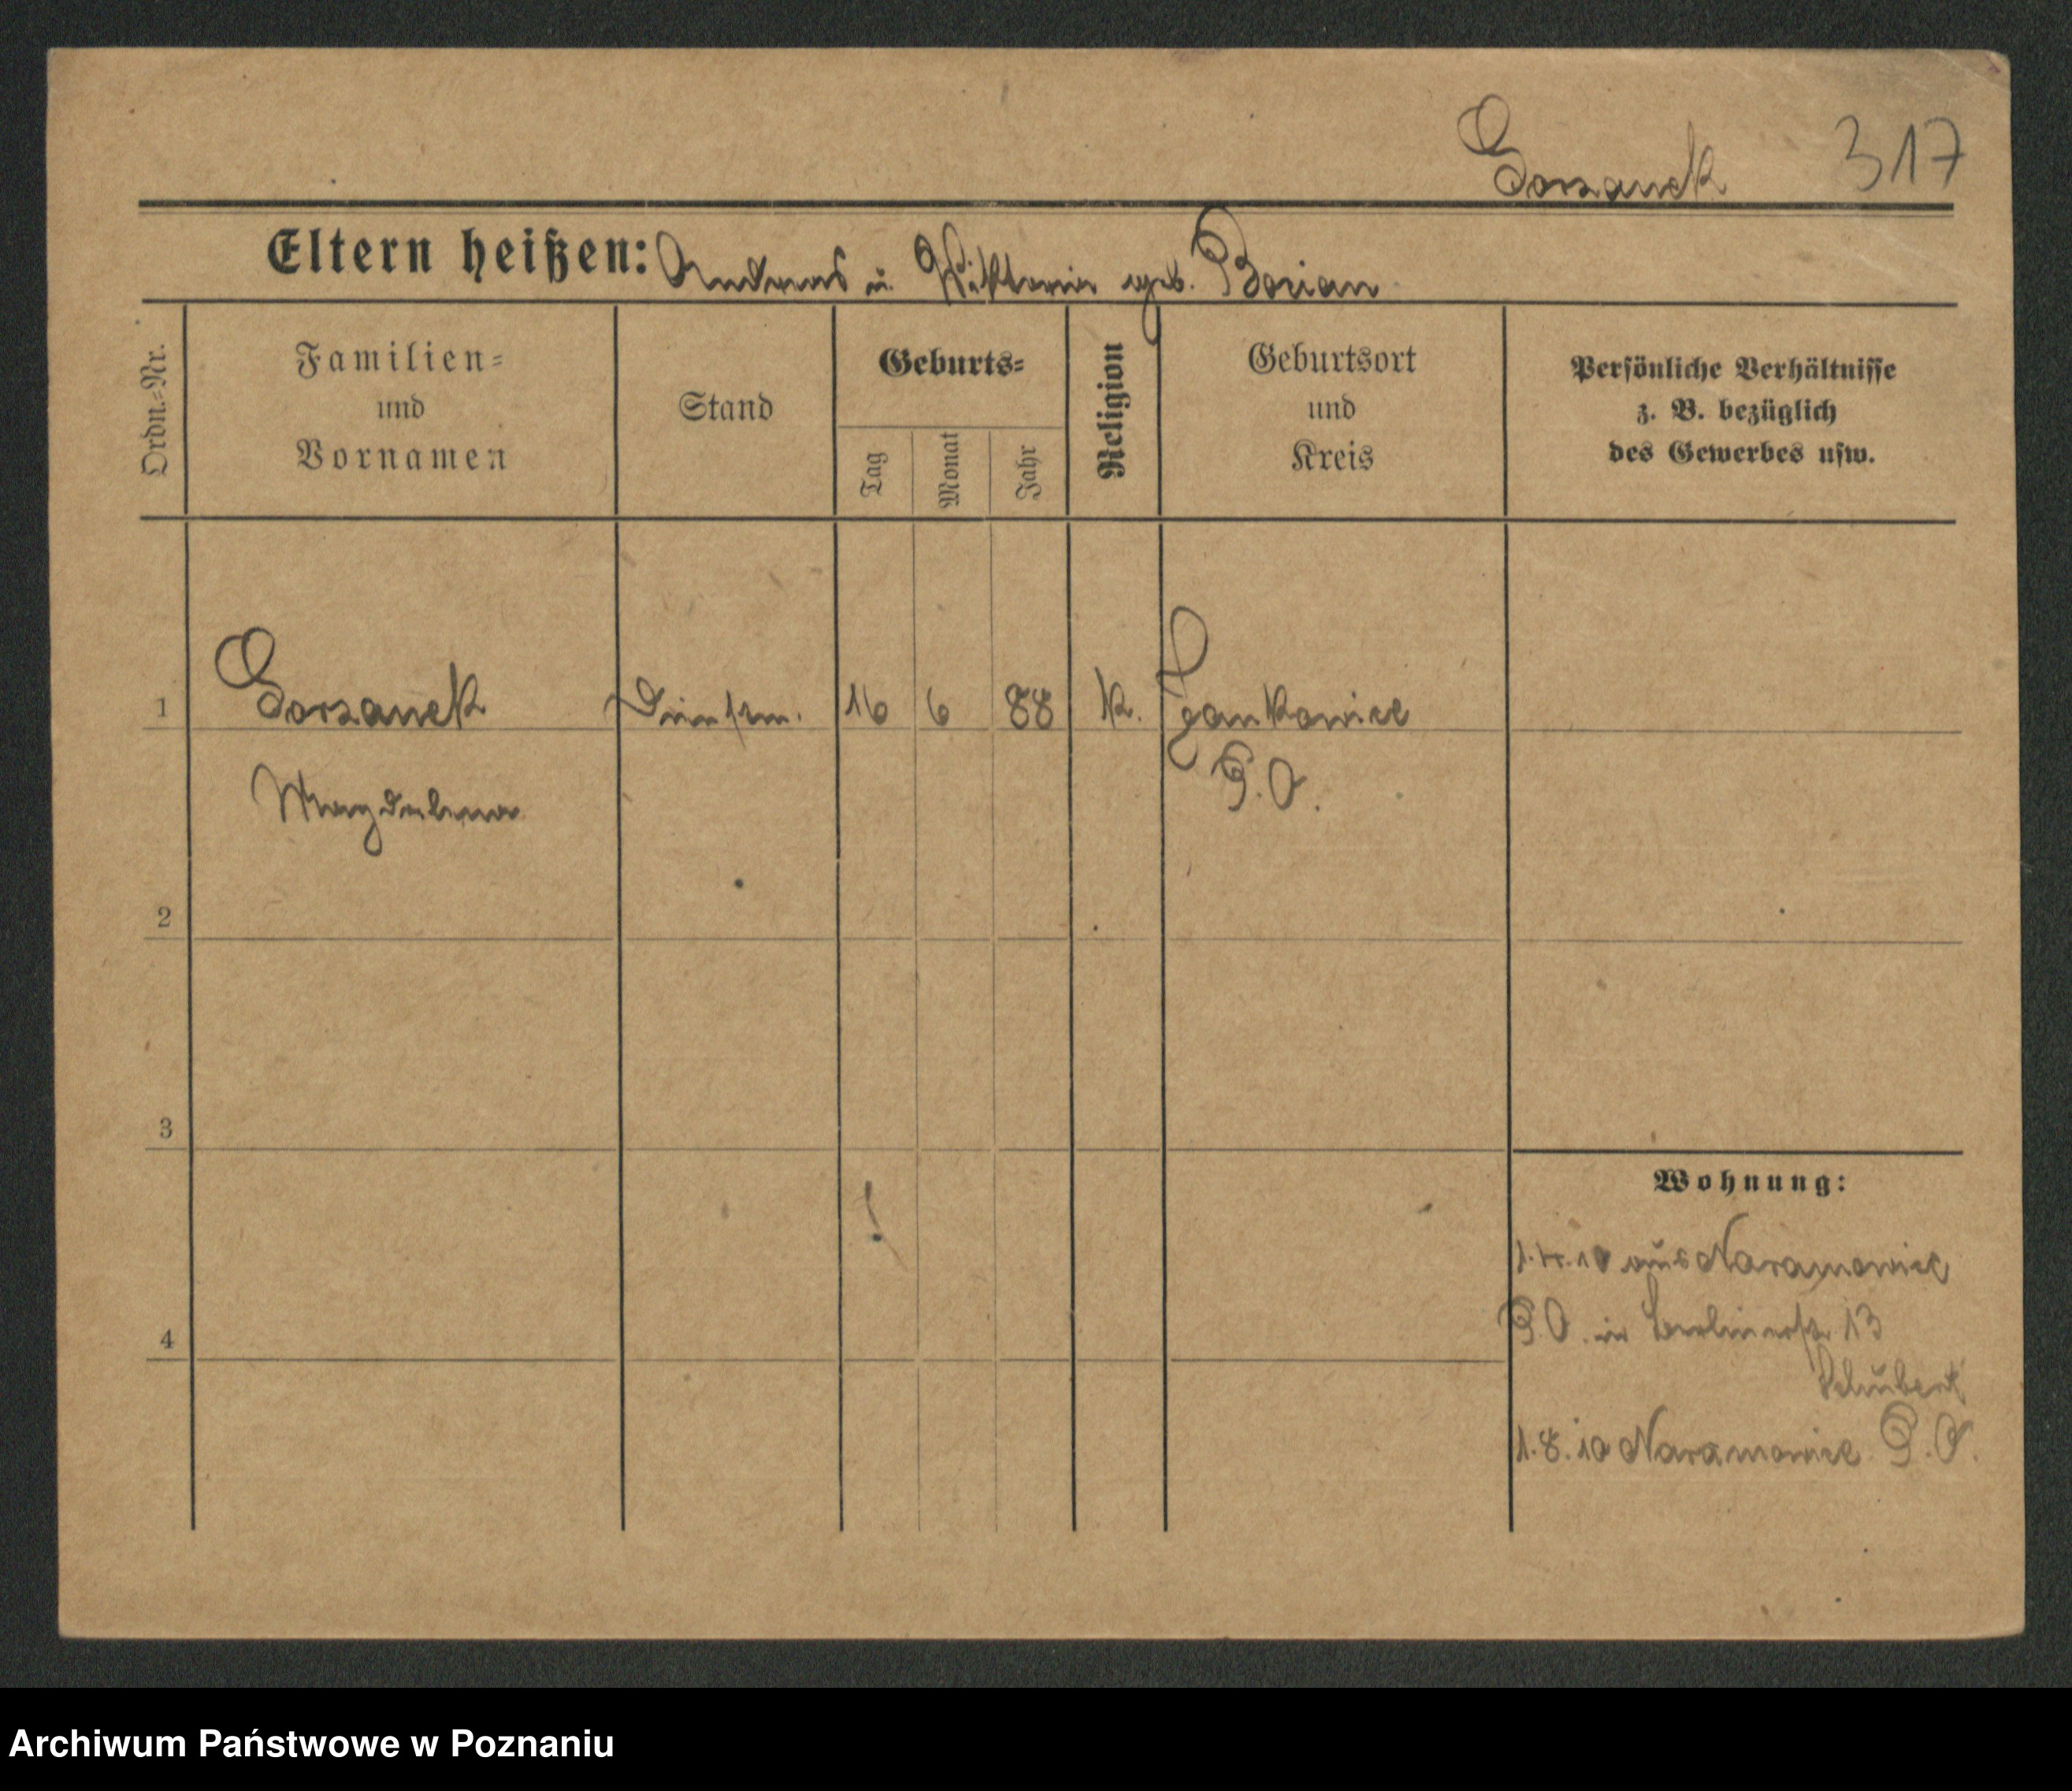 Gorzanek 317
Eltern heißen: Andreas u. Wiktoria geb. Borian
Ordn.=Nr.
Familien=
und
Vornamen
Stand
Geburts=
Tag
Monat
Jahr
Religion
Geburtsort
und
Kreis
Persönliche Verhältnisse
z. B. bezüglich
des Gewerbes usw.
1 Gorzanek 16 6 88 k. Jankowice
Magdalena P.O.
2
3
4
Wohnung:
1.4.10 aus Naramowice
P.O. in Berlinerstr. 13
Schubert
1.8.10 Naramowice P.O.
Archiwum Państwowe w Poznaniu